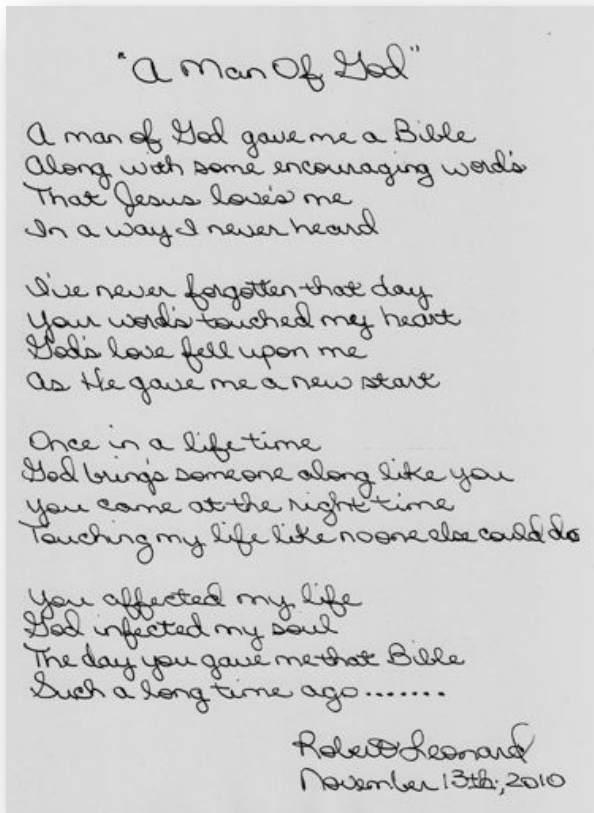 "A Man Of God"
A man of God gave me a Bible
Along with some encouraging word's
That Jesus love's me
In a way I never heard
I've never forgotten that day
Your word's touched my heart
God's love fell upon me
As He gave me a new start
Once in a life time
God bring's someone along like you
You came at the right time
Touching my life like no one else could do
You affected my life
God infected my soul
The day you gave me that Bible
Such a long time ago........
Robert Leonard
November 13th, 2010